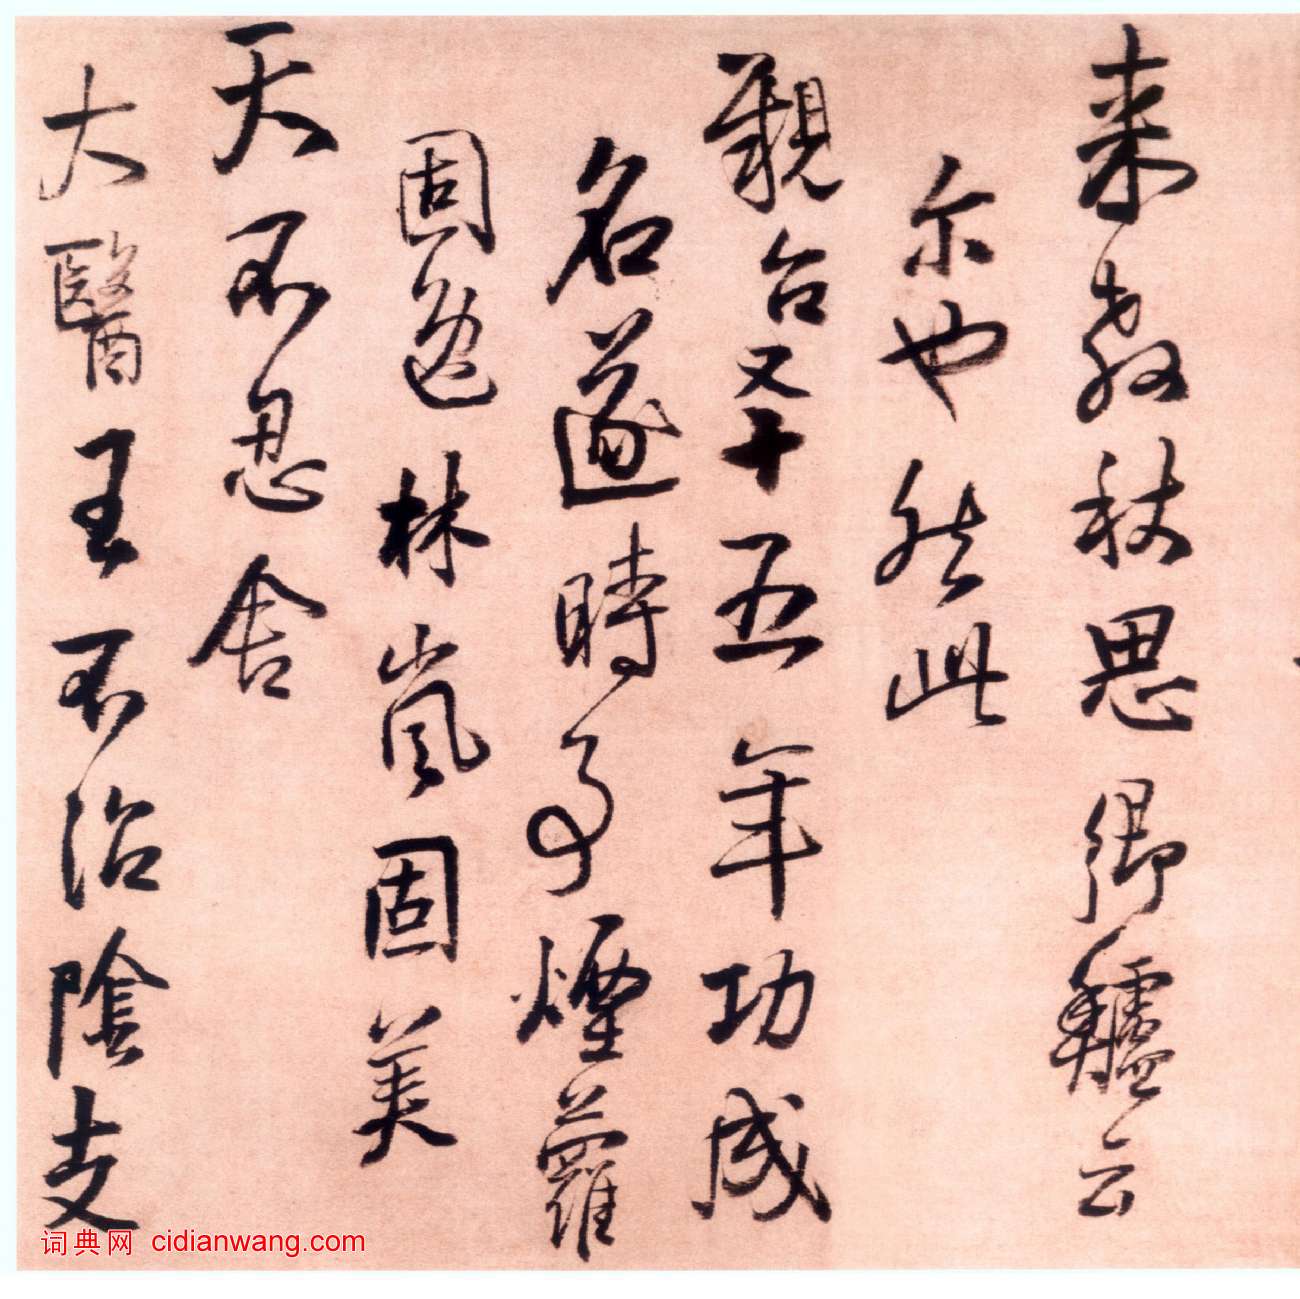 来教秋思鄉鱸云
尔也然此
觀台又十五年功成
名遂時煙蘿
固逸林嵐固美
天不忍舍
大醫王不治陰支
词典网 cidianwang.com